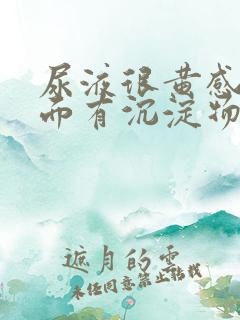 尿液很黄感
而有沉淀物
遮月的云
未经同意禁止转载